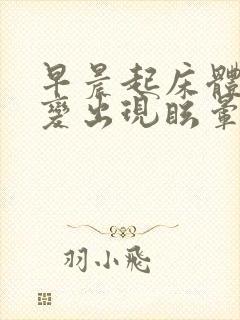 早晨起床體
變出現眩暈
羽小飛